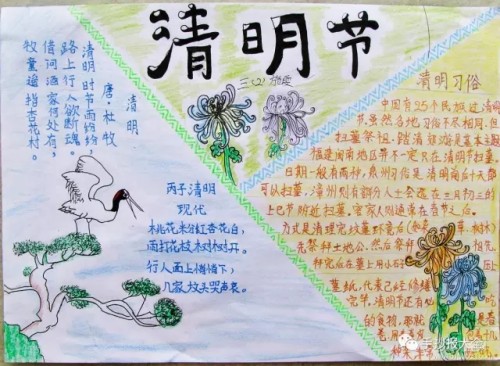 清明节
三(2)
清明
唐·杜牧
清明时节雨纷纷，
路上行人欲断魂。
借问酒家何处有，
牧童遥指杏花村。
丙子清明
现代
桃花未分红杏花白，
雨打花枝树树开。
行人面上悄悄下，
几家坟头哭声哀。
清明习俗
中国有25个民族过清明
节，虽然各地习俗不尽相同，但
扫墓祭祖、踏清郊游是基本主题
福建闽南地区并不一定只在清明节扫墓
日期一般有两种，泉州习俗是清明前后十天都
可以扫墓，漳州则有部分人士会选在三月初三的
上巳节附近扫墓，客家人则通常在春节之后。
方式是清理完坟墓环境后
先祭拜土地公，然后祭拜 祖先
拜完后在墓上用小石 压上
墓纸，代表已经修缮
完毕。清明节还有
的食物，那就 是春
手抄报大全